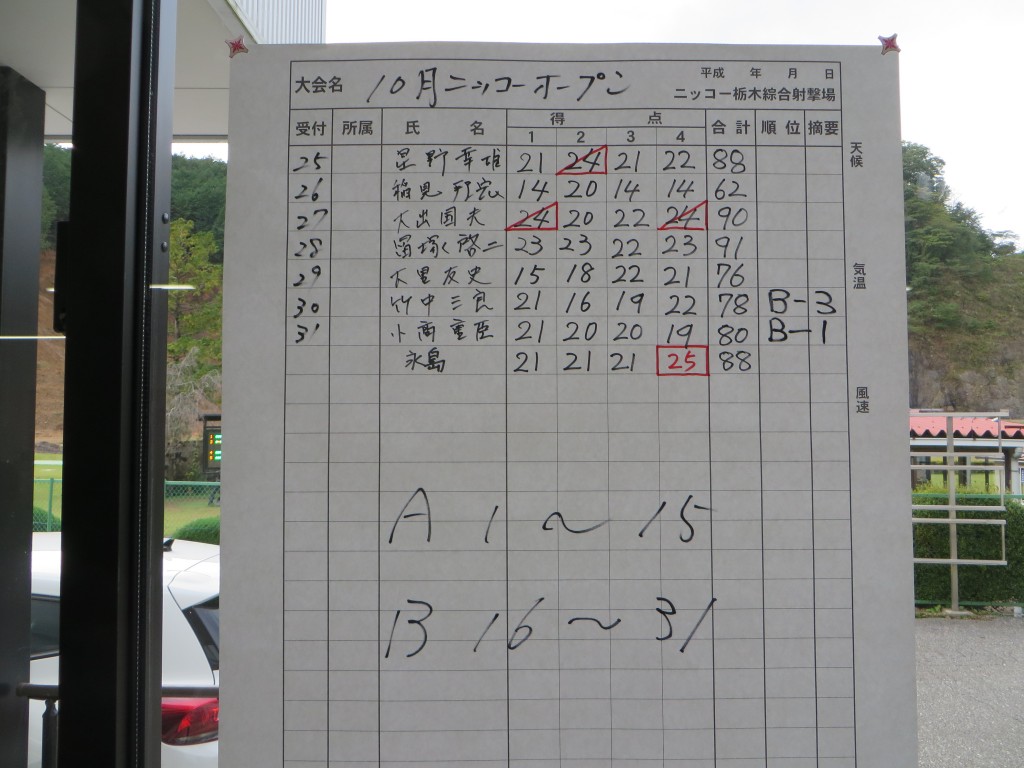 大会名 10月ニッコーオープン 平成 年 月 日
ニッコー栃木綜合射撃場
受付 所属 氏 名 得 点 合計 順位 摘要
1 2 3 4
25 星野幸雄 21 24 21 22 88
26 稲見 14 20 14 14 62
27 大出国夫 24 20 22 24 90
28 啓二 23 23 22 23 91
29 大里友史 15 18 22 21 76
30 竹中三良 21 16 19 22 78 B-3
31 小南重臣 21 20 20 19 80 B-1
氷島 21 21 21 25 88
天候
気温
風速
A 1 ~ 15
B 16 ~ 31